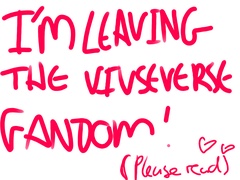 I'M LEAVING
THE VIVSEVERSE
FANDOM!
(please read)